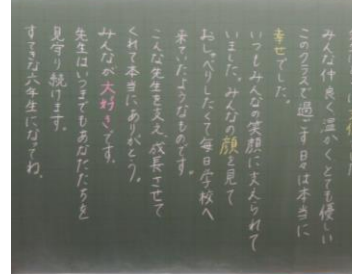 みんな仲良く温かくとても優しい
このクラスで過ごす日々は本当に
幸せでした。
いつもみんなの笑顔に支えられて
いました。みんなの顔を見て
おしゃべりしたくて毎日学校へ
来ていたようなものです。
こんな先生を支え成長させて
くれて本当にありがとう。
みんなが大好きです。
先生はいつまでもあなたたちを
見守り続けます。
すてきな六年生になってね。